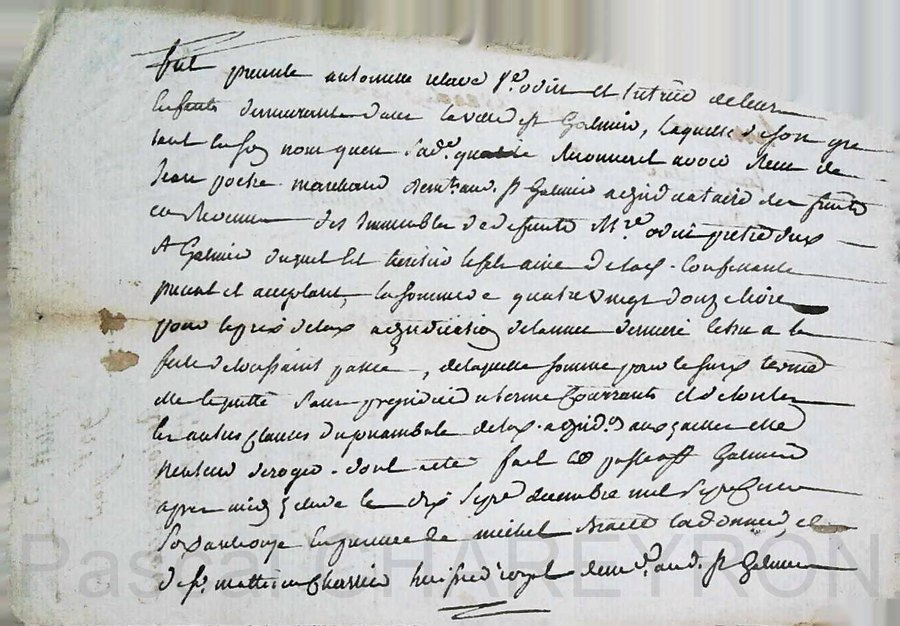 fut presente antoinette relave v.e odin et tutrice de leurs
enfants demeurante dans la ville st Galmier, laquelle de son gré
tant en son nom qu'en sad.e qualité reconnoit avoir reçu de
Jean poche marchand dem.t aud. st Galmier adjudicataire des fruits
et revenus des immeubles de defunt M.re odin pretre dud
st Galmier duquel est heritier le pelerin de lad. Confessante
present et acceptant, la somme de quatre vingt douze livres
pour le prix de lad adjudication de l'année derniere echu a la
fete de toussaint passée, de laquelle somme pour le susd terme
elle le quitte sans prejudice du terme courrant et de toutes
les autres clauses du preambule de lad. adjud.on auxquelles elle
n'entend deroger. dont acte fait et passé a st Galmier
apres midy etude le dix sept decembre mil sept cent
soixante onze en presence de michel cordonnier, et
de s.r mathieu Charvier huissier royal dem.t aud. st Galmier
Pascal CHAREYRON